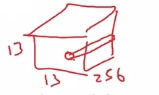 13
13 256